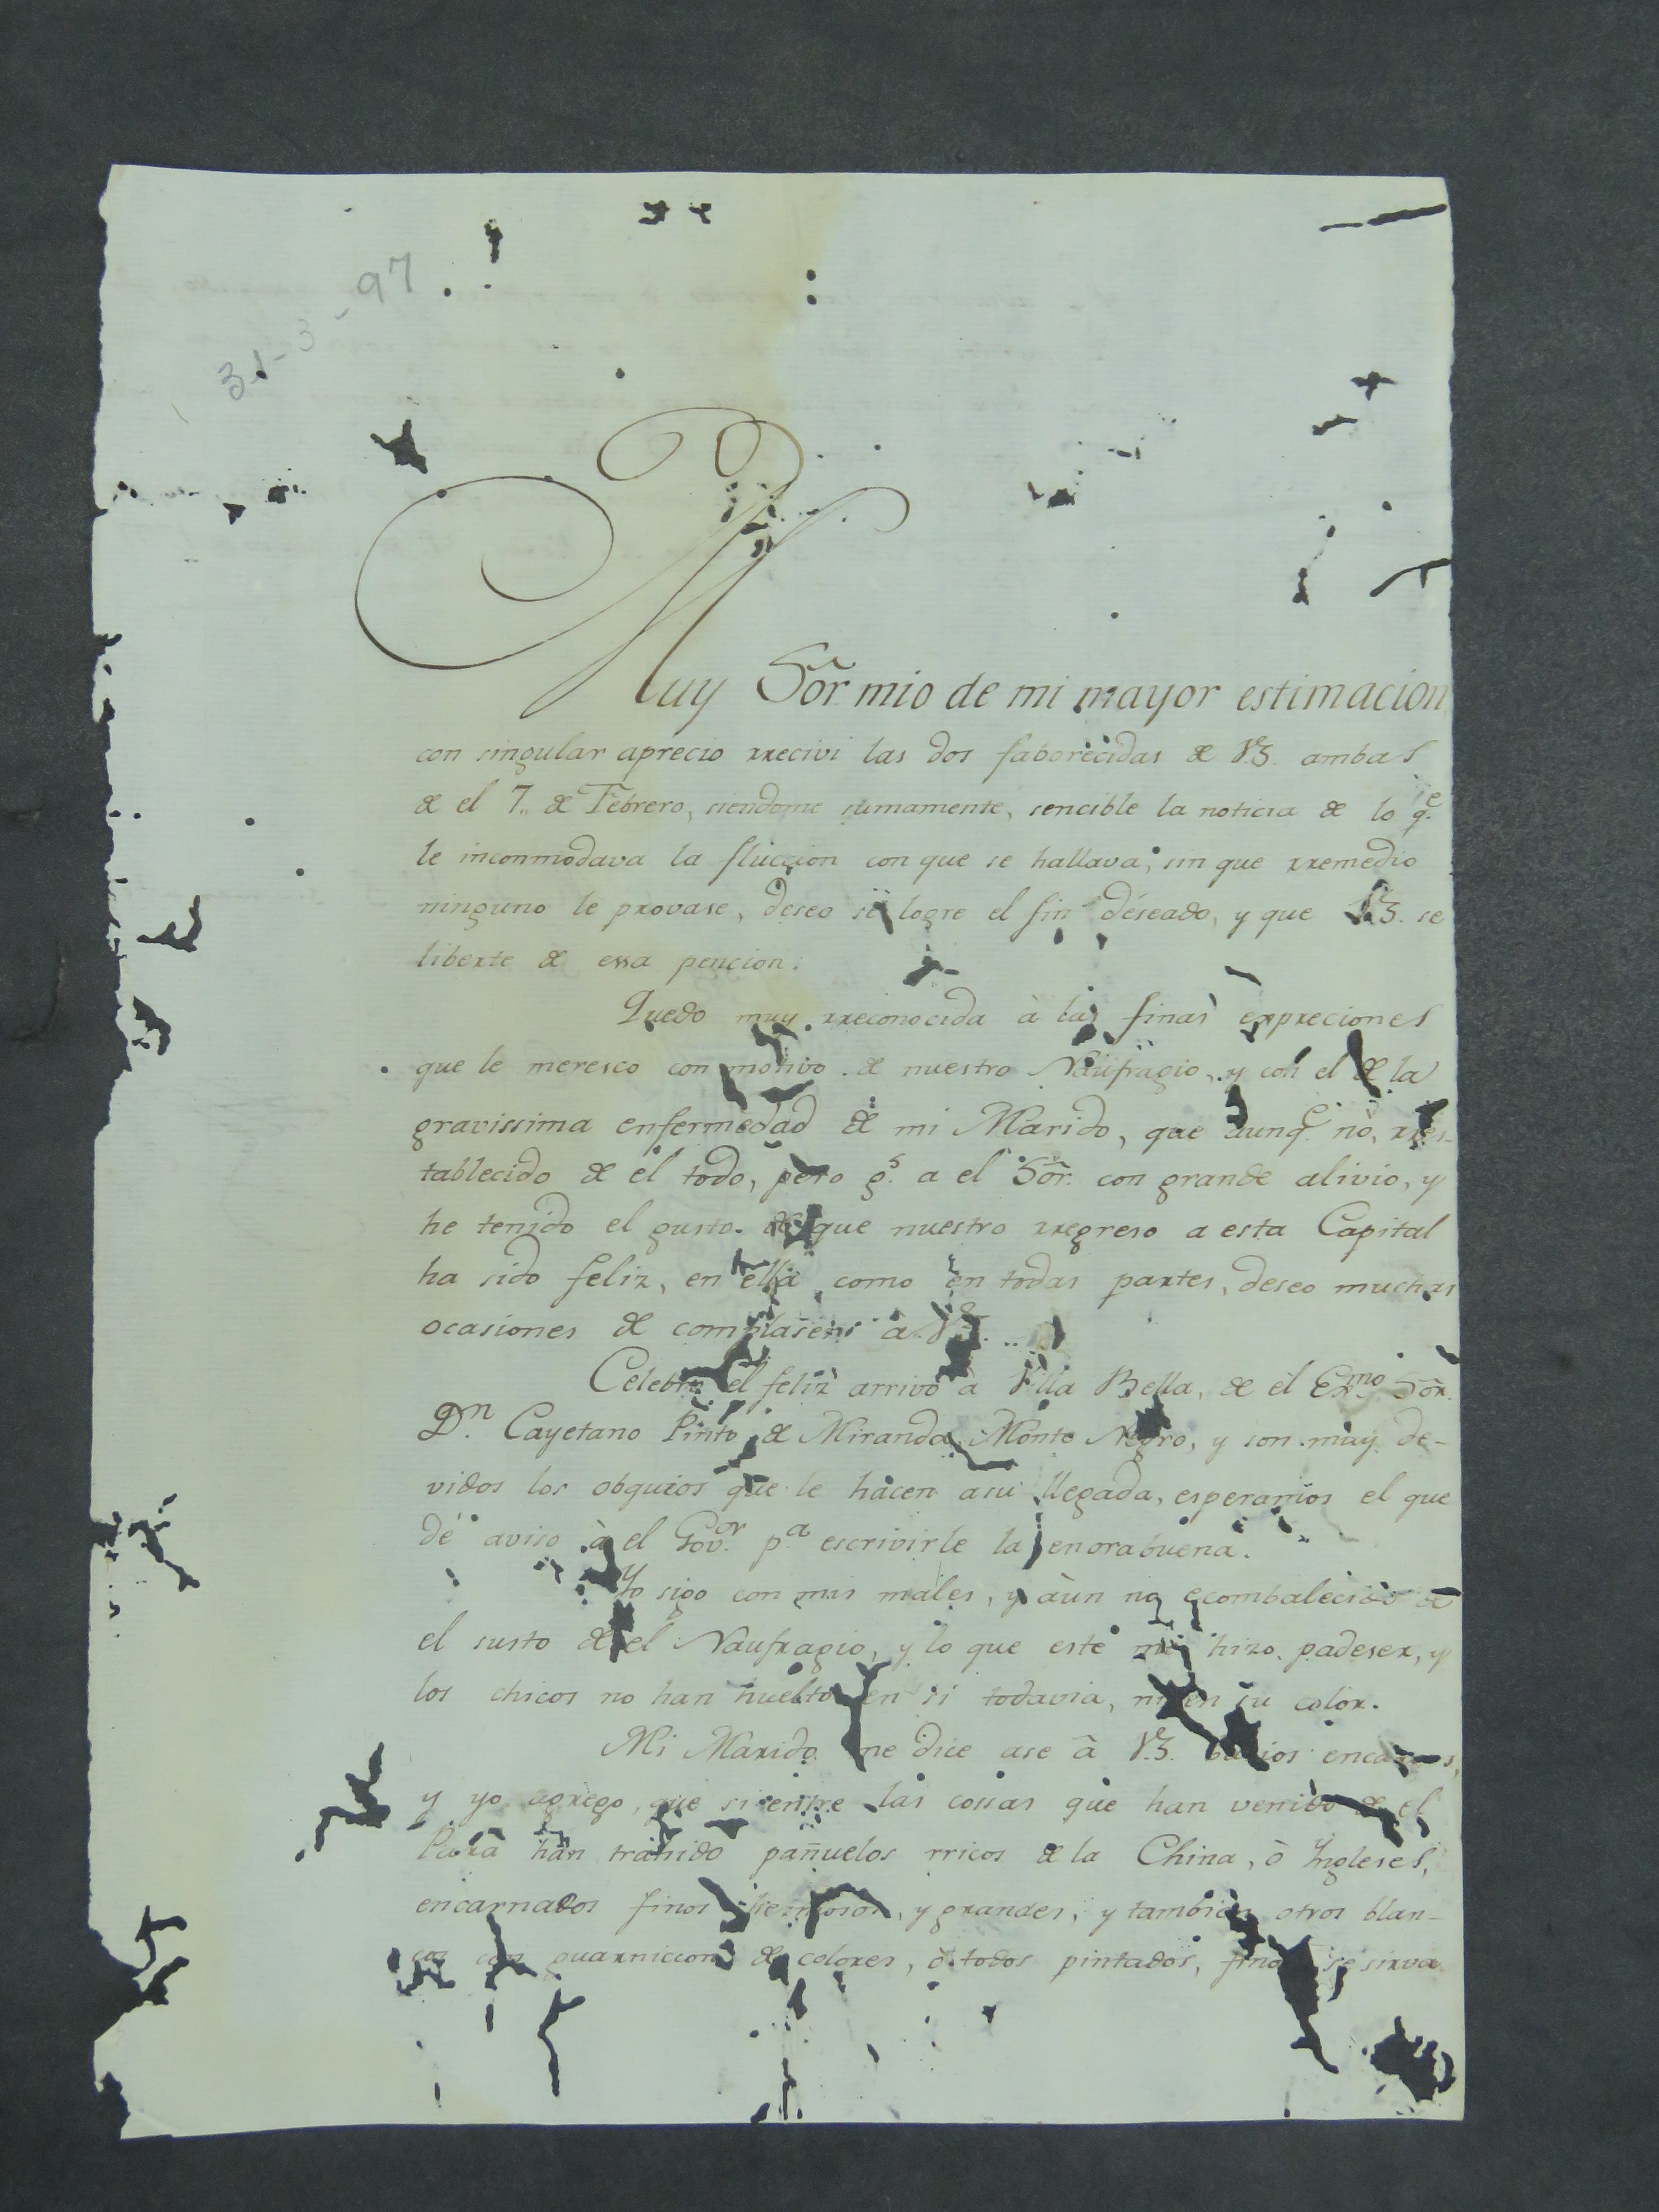 31-3-97
Muy Sõr mio de mi mayor estimacion
con singular aprecio rrecivi las dos faborecidas de VS. ambas
de el 7,, de Febrero, siendome sumamente, sencible la noticia de lo q.e
le inconmodava la fluccion con que se hallava, sin que rremedio
ninguno le provase, deseo se logre el fin deseado, y que VS. se
liberte de essa pencion.
Quedo muy rreconocida à las finas expreciones
que le meresco con motivo de nuestro Naufragio, y con el de la
gravissima enfermedad de mi Marido, que aunq.e no, rres-
tablecido de el todo, pero g.s a el Sõr. con grande alivio, y
he tenido el gusto de que nuestro rregreso a esta Capital
ha sido feliz, en ella como en todas partes, deseo muchas
ocasiones de complaserr à VS.
Celebro el feliz arrivo à Villa Bella, de el Exmo Sõr.
Dn. Cayetano Pinto de Miranda Monte Negro, y son muy de-
vidos los obquios que le hacen asu llegada, esperamos el que
dé aviso à el Gov.or p.a escrivirle la enorabuena.
Yo sigo con mis males, y aùn no combalecido de
el susto de el Naufragio, y lo que este me hizo padeser, y
los chicos no han buelto en si todavia, ni en su color.
Mi Marido me dice ase à VS. barios encargos,
y yo agrego, que si entre las cossas que han venido de el
Parà han trahido pañuelos rricos de la China, ò Yngleses,
encarnados finos hermosos, y grandes, y tambien otros blan-
cos con guarniccion de colores, ò todos pintados, finos se sirva